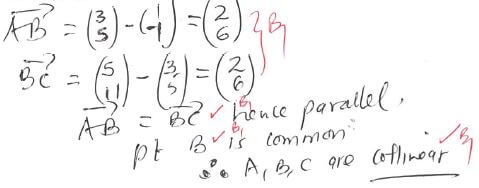 AB = (3 5) - (1 -1) = (2 6) } B1
BC = (5 11) - (3 5) = (2 6)
AB = BC ✓ B1 hence parallel.
pt B ✓ B1 is common
∴ A, B, C are collinear ✓ B1